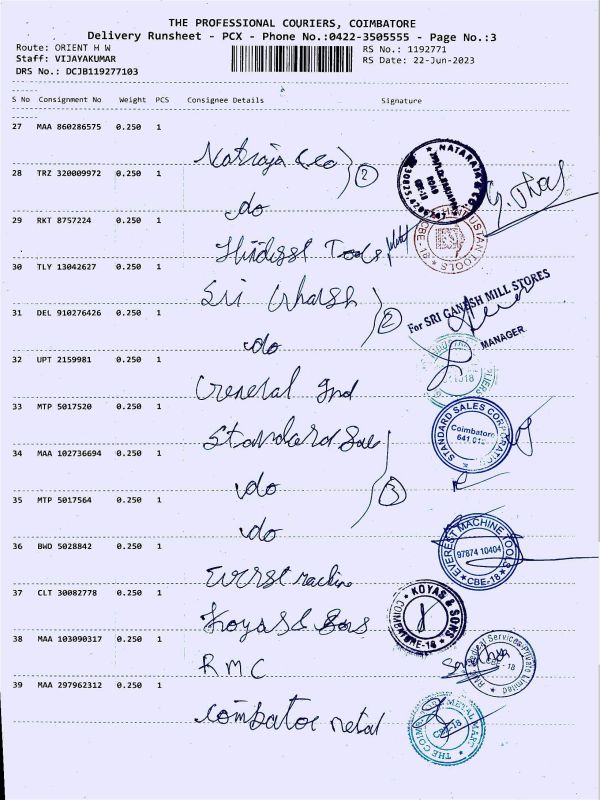 THE PROFESSIONAL COURIERS, COIMBATORE
Delivery Runsheet - PCX - Phone No.:0422-3505555 - Page No.:3
Route: ORIENT H W
RS No.: 1192771
Staff: VIJAYAKUMAR
RS Date: 22-Jun-2023
DRS No.: DCJB119277103
S No Consignment No Weight PCS Consignee Details Signature
27 MAA 860286575 0.250 1
Natraja & co 2
NATARAJA & CO
28 TRZ 320009972 0.250 1
do
29 RKT 8757224 0.250 1
Tools
TOOLS
CBE-18
30 TLY 13042627 0.250 1
Sri
For SRI GANESH MILL STORES
MANAGER
31 DEL 910276426 0.250 1
2
do
32 UPT 2159981 0.250 1
General Ind
33 MTP 5017520 0.250 1
Standard Sale
STANDARD SALES CORPORATION
Coimbatore
34 MAA 102736694 0.250 1
do
3
35 MTP 5017564 0.250 1
do
36 BWD 5028842 0.250 1
Everst machine
EVEREST MACHINE TOOLS
97874 10404
CBE-18
37 CLT 30082778 0.250 1
Koyas & Sons
KOYAS & SONS
COIMBATORE-18
38 MAA 103090317 0.250 1
RMC
Medical Services Private Limited
CBE - 18
39 MAA 297962312 0.250 1
combator metal
THE COIMBATORE METAL MART
CBE-18